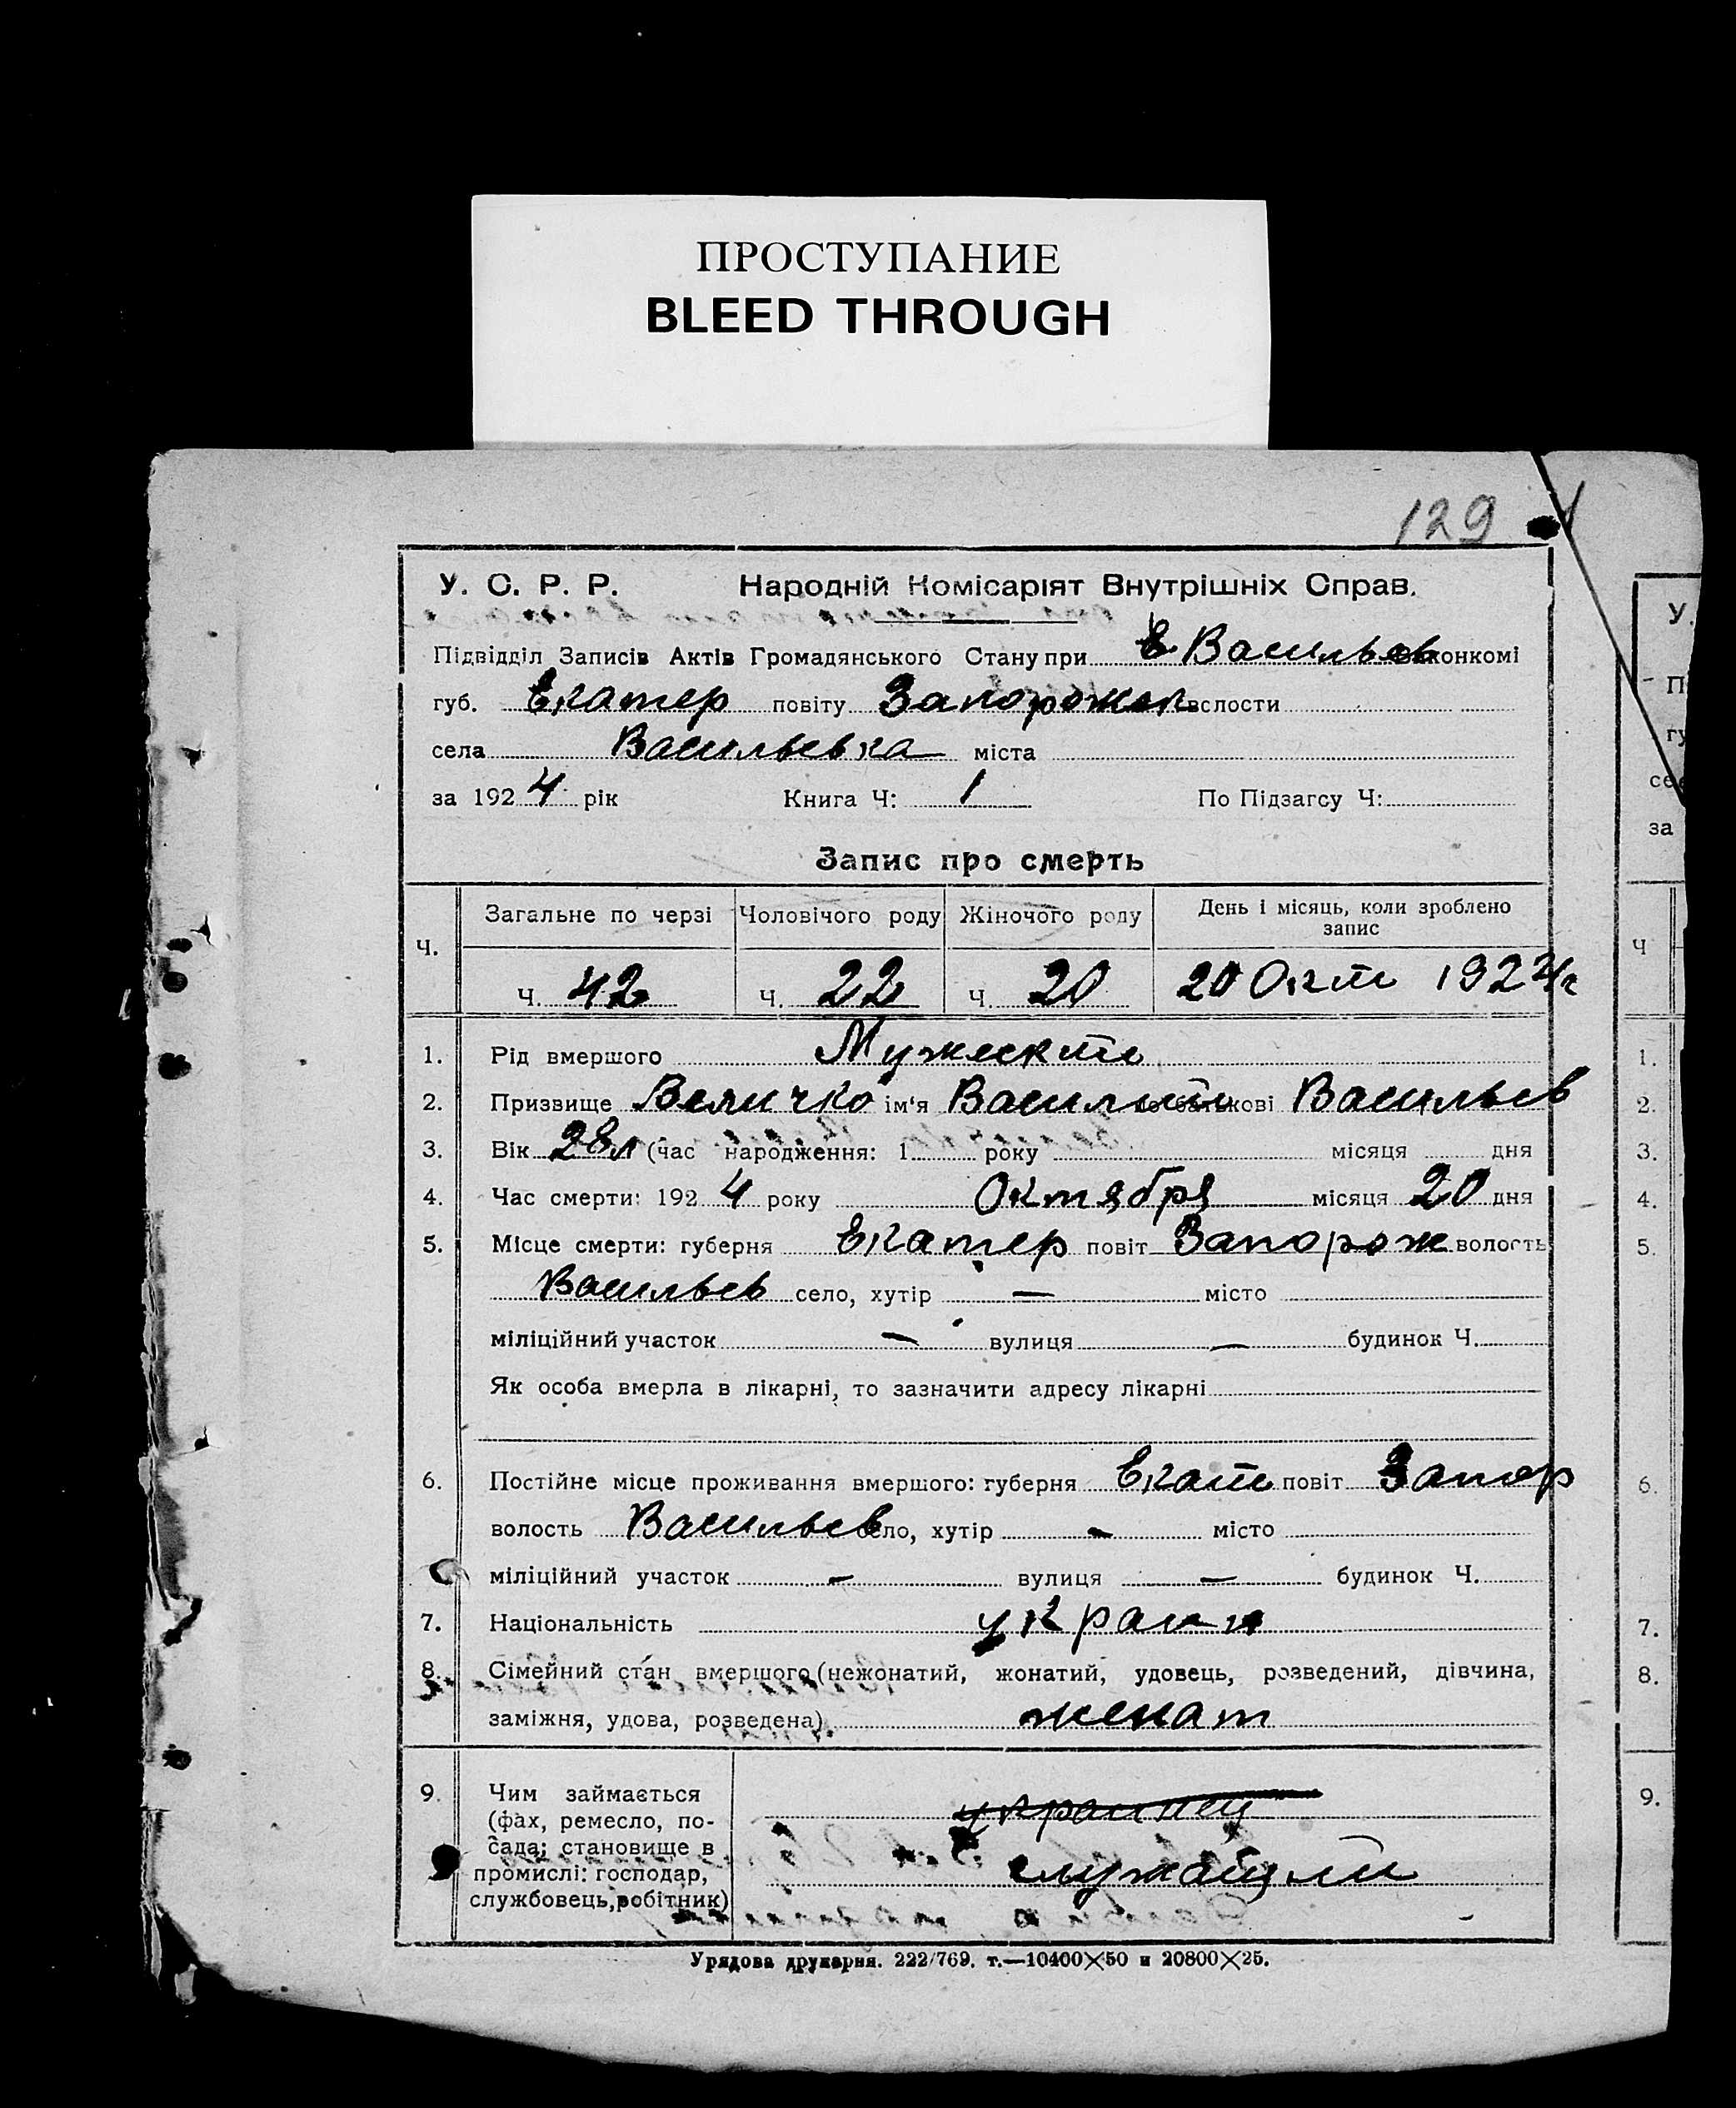 ПРОСТУПАНИЕ
BLEED THROUGH
129
У. С. Р. Р. Народній Комісаріят Внутрішніх Справ.
Підвідділ Записів Актів Громадянського Стану при Васильев конкомі
губ. Екатер повіту Запорожск волости
села Васильевка міста
за 1924 рік Книга Ч: 1 По Підзагсу Ч:
Запис про смерть
Ч. Загальне по черзі Чоловічого роду Жіночого роду День і місяць, коли зроблено
запис
Ч. 42 Ч. 22 Ч. 20 20 Окт 1924 г
1. Рід вмершого
2. Призвище Величко ім'я Василий по батькові Васильев
3. Вік 28 л (час народження: 1 року місяця дня
4. Час смерти: 1924 року Октября місяця 20 дня
5. Місце смерти: губерня Екатер повіт Запорож волость
Васильев село, хутір — місто
міліційний участок — вулиця — будинок Ч.
Як особа вмерла в лікарні, то зазначити адресу лікарні
6. Постійне місце проживання вмершого: губерня Екат повіт Запор
волость Васильев село, хутір — місто
міліційний участок — вулиця — будинок Ч.
7. Національність украин
8. Сімейний стан вмершого (нежонатий, жонатий, удовець, розведений, дівчина,
заміжня, удова, розведена) женат
9. Чим займається
(фах, ремесло, по-
сада; становище в
промислі: господар,
службовець, робітник)
украинец
служащий
Урядова друкарня. 222/769. т.—10400×50 и 20800×25.
У.
П
гу
се
за
Ч
1.
2.
3.
4.
5.
6.
7.
8.
9.